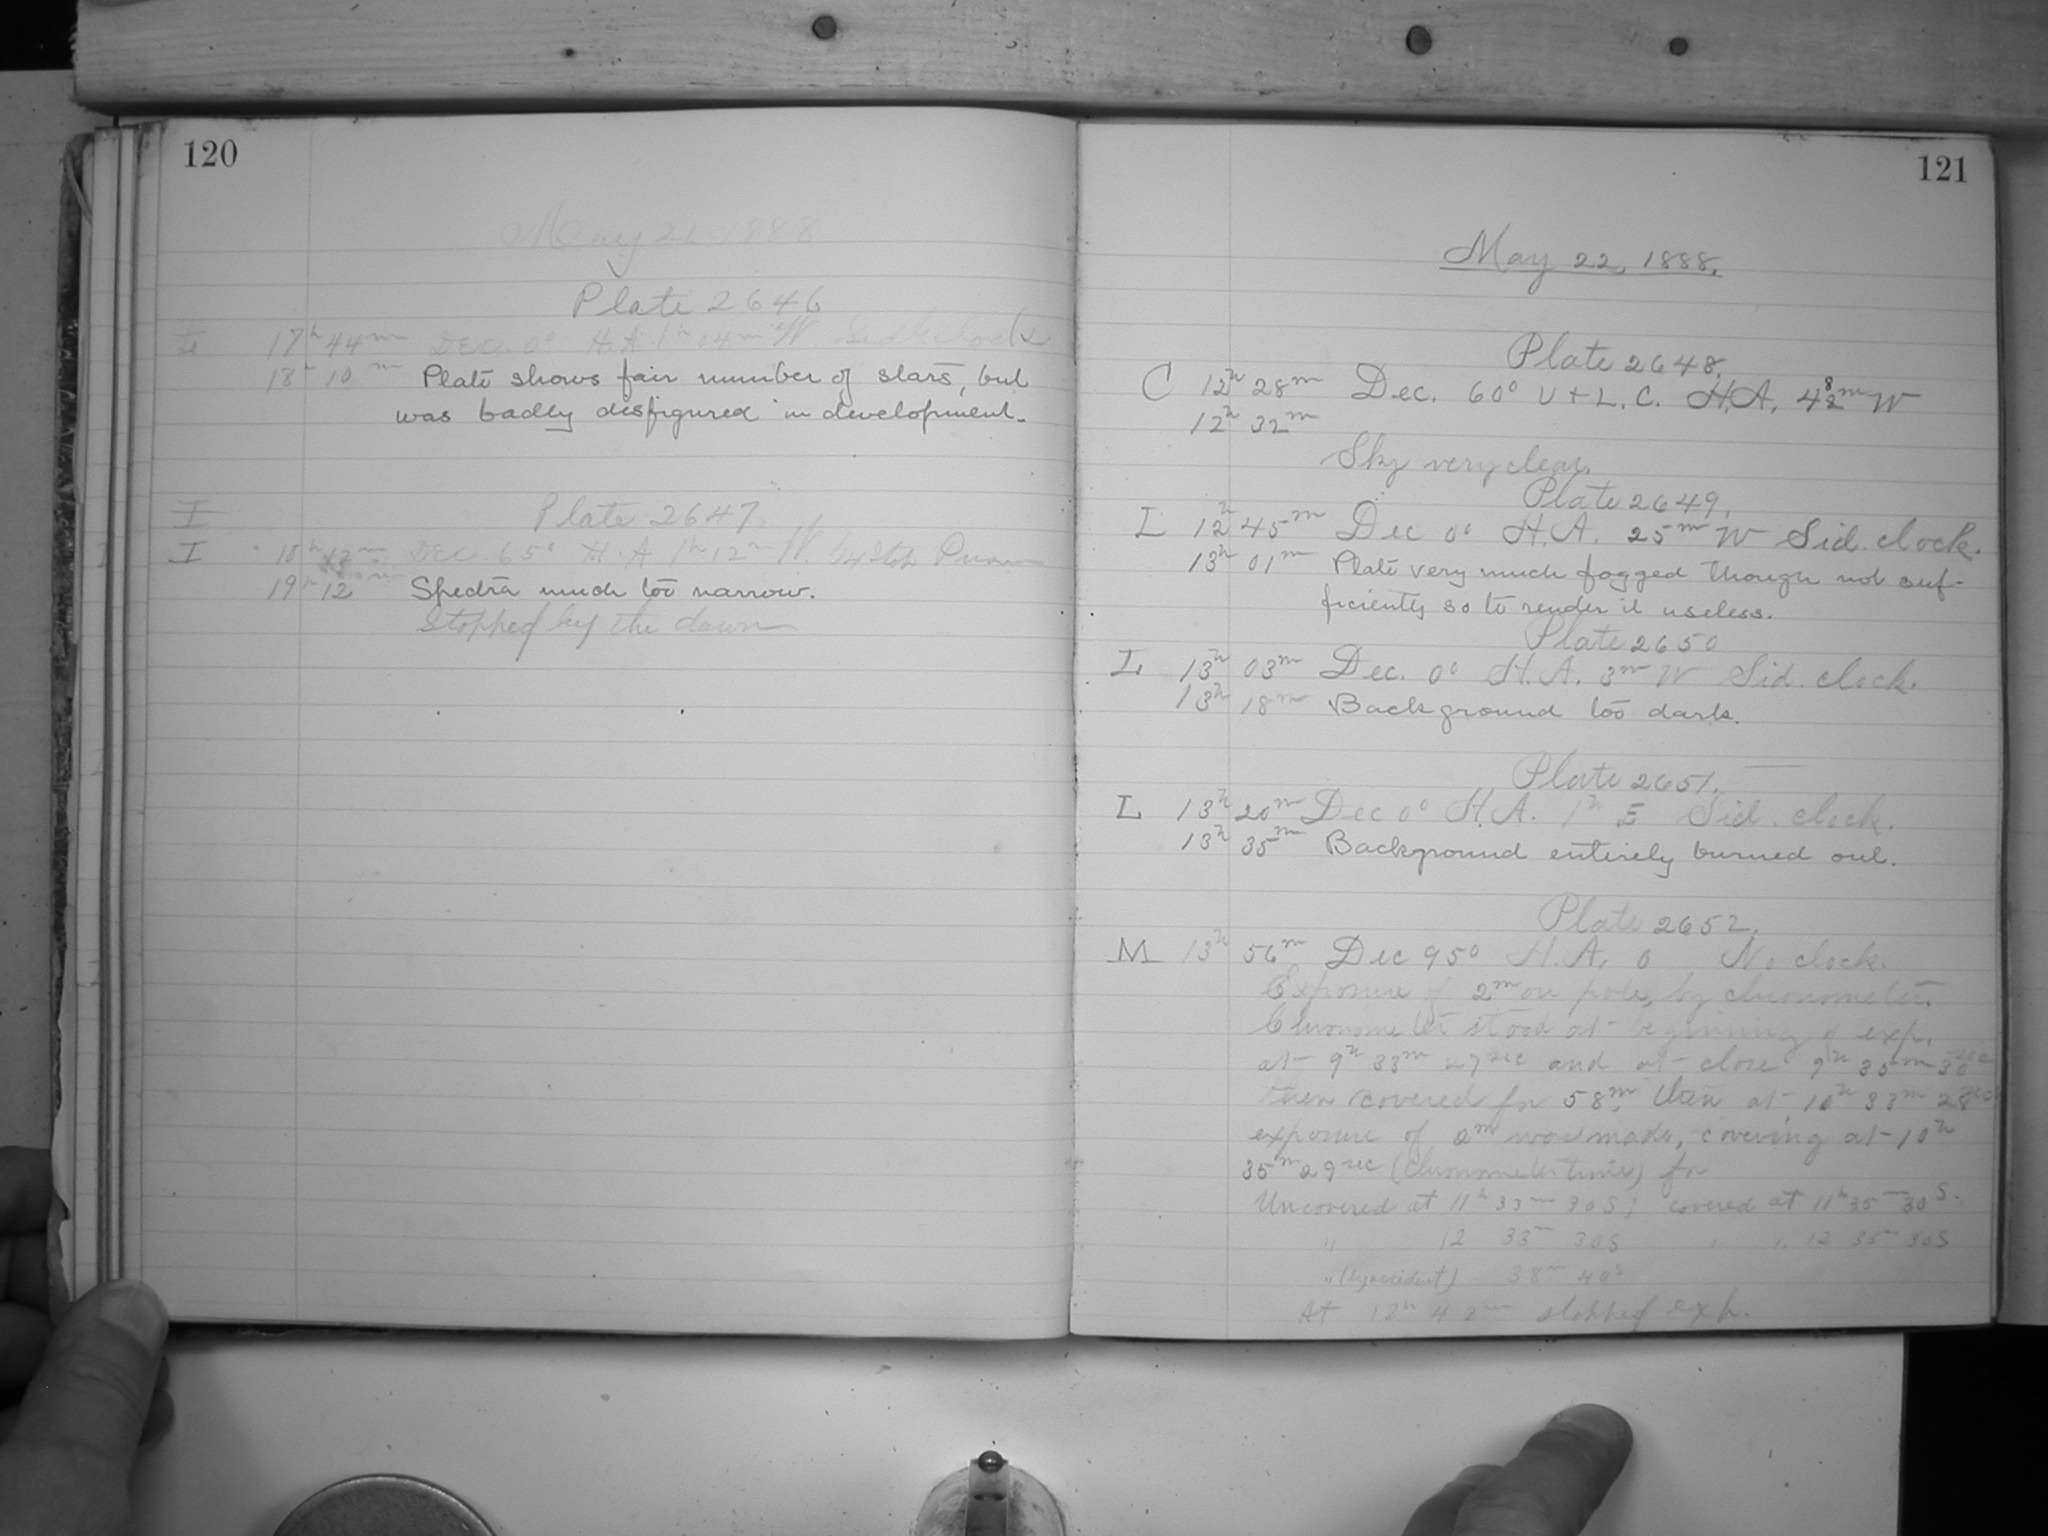 120
May 21, 1888
Plate 2646
L 17h 44m Dec. 0° H.A. 1h 04m W. Sid. clock
18h 10m Plate shows fair number of stars, but
was badly disfigured in development.
I Plate 2647.
I 18h 12m Dec. 65° H.A 1h 12m W.
19h 12 Spectra much too narrow.
Stopped by the dawn
121
May 22, 1888.
Plate 2648.
C 12h 28m Dec. 60° U + L. C. H.A. 48m W
12h 32m
Sky very clear.
Plate 2649.
L 12h 45m Dec 0° H.A. 25m W Sid. clock.
13h 01m Plate very much fogged though not suf-
ficiently so to render it useless.
Plate 2650
L 13h 03m Dec. 0° H.A. 3m W Sid. clock.
13h 18m Background too dark.
Plate 2651.
L 13h 20m Dec 0° H.A. 1h E Sid. clock.
13h 35m Background entirely burned out.
Plate 2652.
M 13h 56m Dec 95° H.A. 0 No clock.
Exposure of 2m on pole, by chronometer.
Chronometer stood at beginning of exp.
at 9h 33m 27sec and at close 9h 35m 30sec
then covered for 58m, then at 10h 33m 28sec
exposure of 2m was made, covering at 10h
35m 29sec (chronometer time) for
Uncovered at 11h 33m 30s; covered at 11h 35m 30s.
" 12 33m 30s " " 12 35m 30s
" (by accident) 38m 40s
At 12h 42m stopped exp.